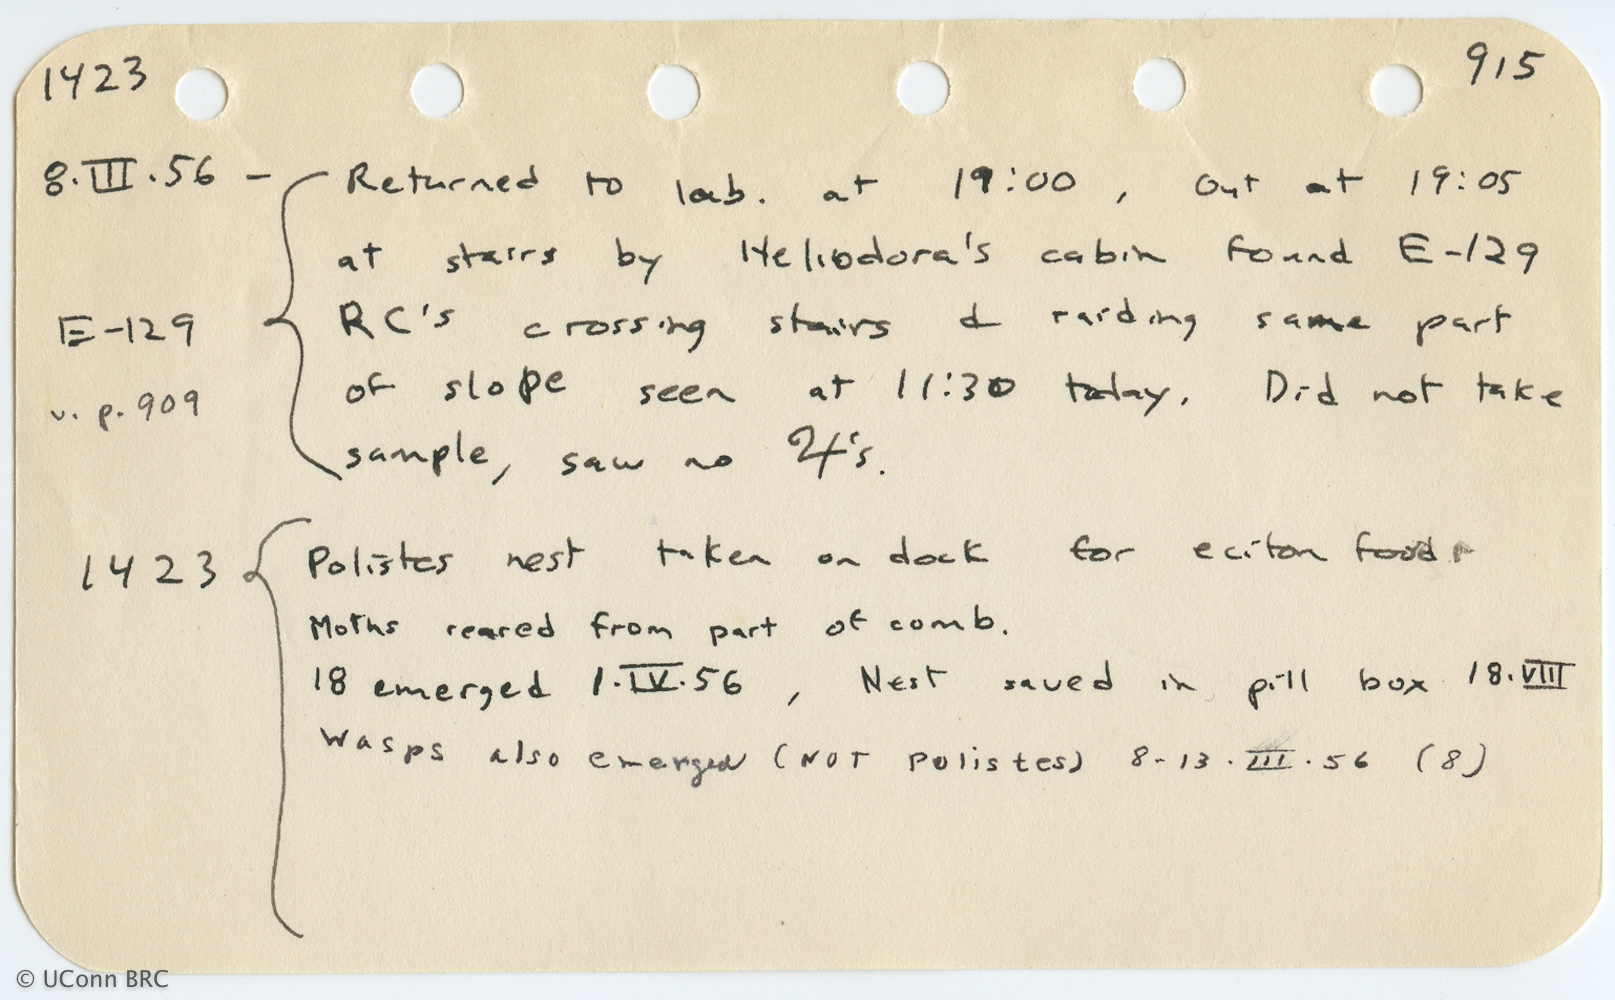 1423 915
8.III.56 — Returned to lab. at 19:00, out at 19:05
at stairs by Heliodora's cabin found E-129
E-129 RC's crossing stairs & raiding same part
v. p. 909 of slope seen at 11:30 today. Did not take
sample, saw no ♃'s.
1423 Polistes nest taken on dock for eciton food.
Moths reared from part of comb.
18 emerged 1.IV.56, Nest saved in pill box 18.VIII
Wasps also emerged (NOT Polistes) 8-13.III.56 (8)
© UConn BRC